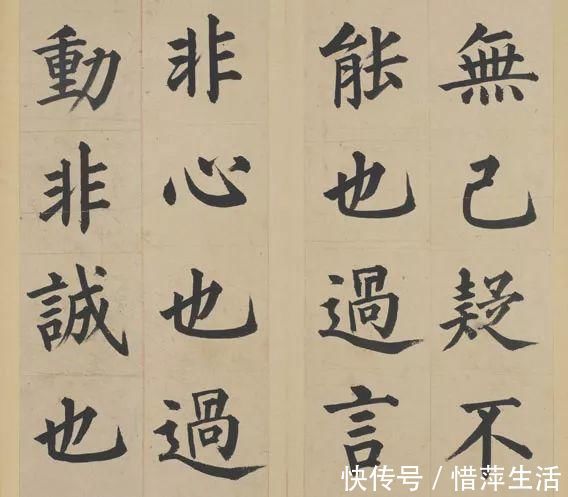 無己疑不
能也過言
非心也過
動非誠也
快传号/惜萍生活